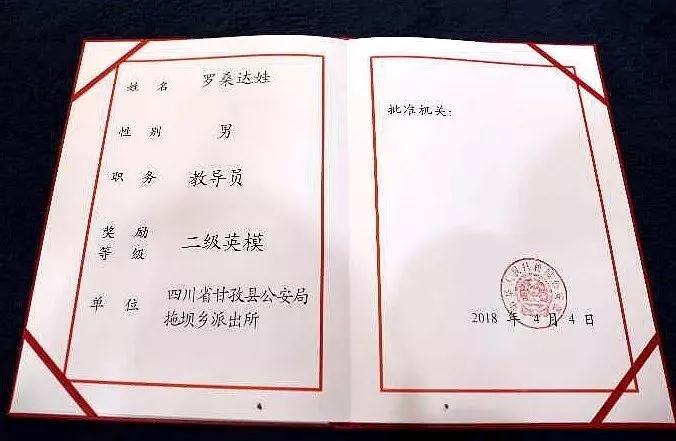 姓名 罗桑达娃
性别 男
职务 教导员
奖励
等级 二级英模
单位 四川省甘孜县公安局
拖坝乡派出所
批准机关：
2018 年 4 月 4 日